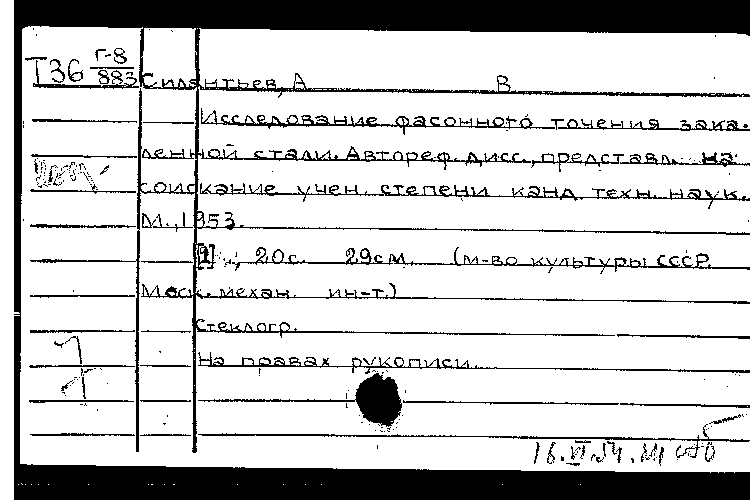 Т36 Г-8
883
Силантьев, А В
Исследование фасонного точения зака-
ленной стали. Автореф. дисс., представл. на
соискание учен. степени канд. техн. наук.
М., 1953.
[1] , 20с. 29см. (М-во культуры СССР.
Моск. механ. ин-т.)
Стеклогр.
На правах рукописи.
16.VI.54.